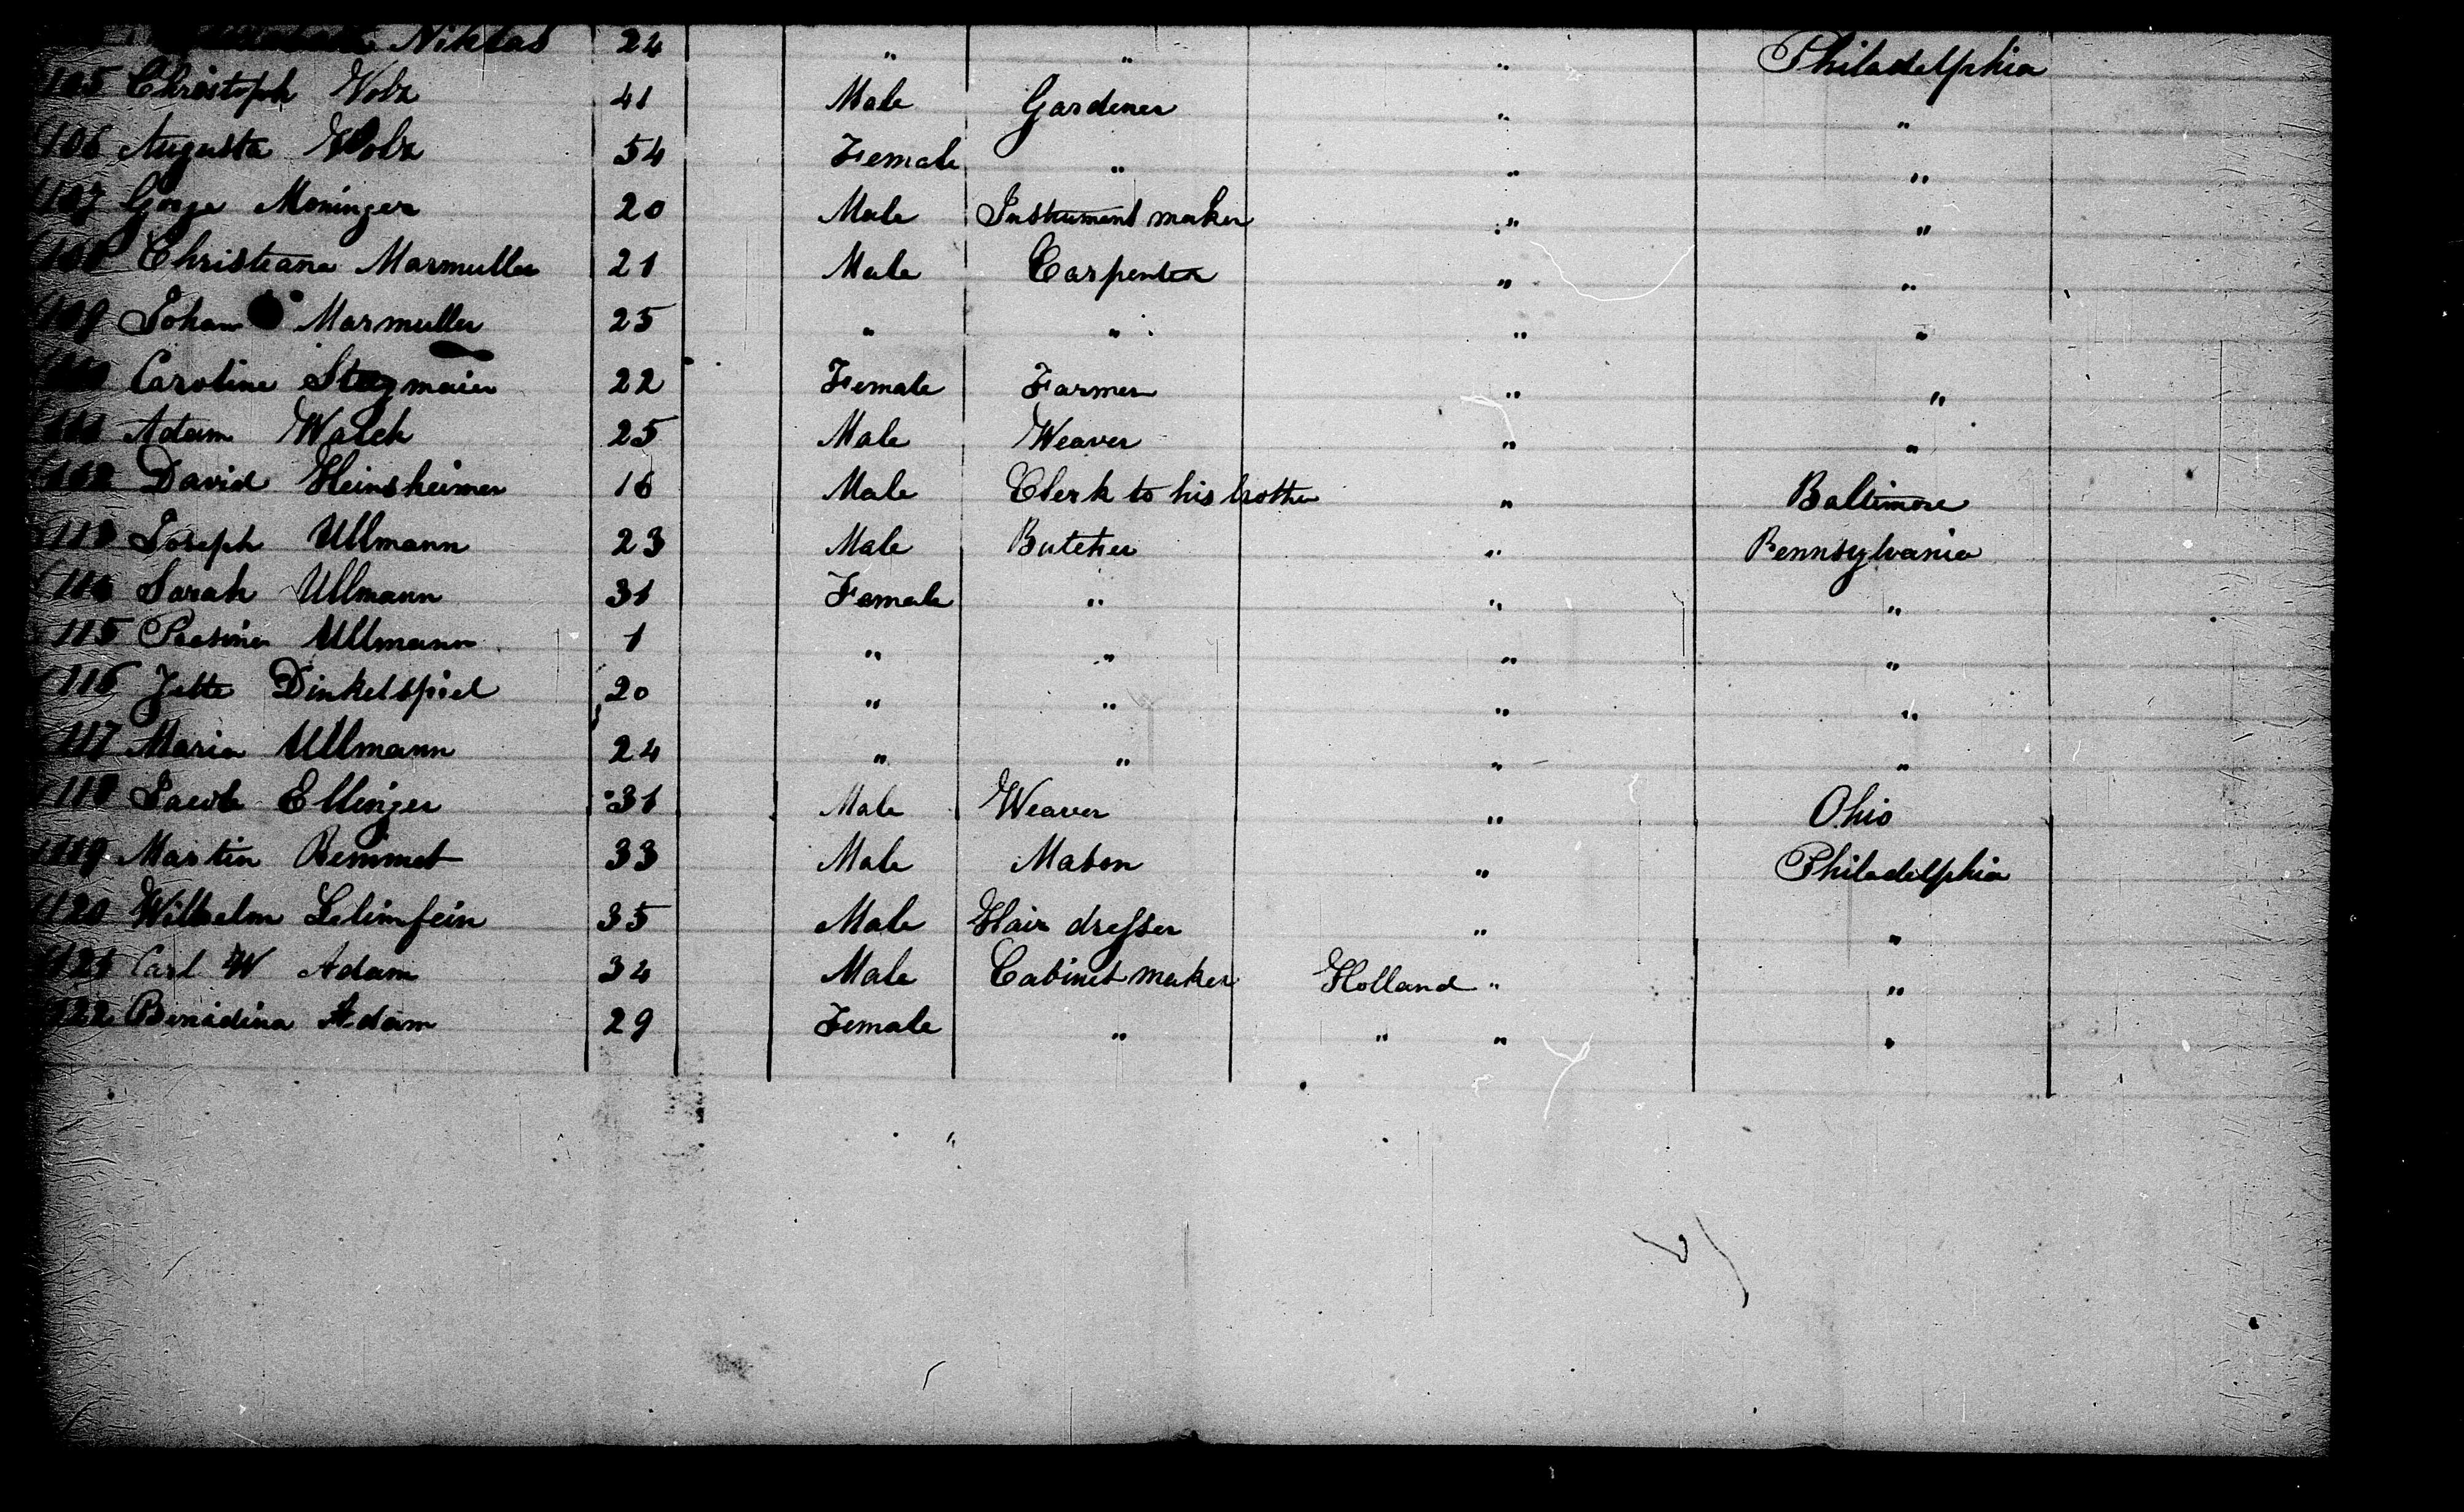 Niklas 24 " " " Philadelphia
105 Christoph Volz 41 Male Gardener " "
106 Augusta Volz 54 Female " " "
107 Gorge Moninger 20 Male Instrument maker " "
108 Christiana Marmuller 21 Male Carpenter " "
109 Johan Marmuller 25 " " " "
Caroline Stegmaier 22 Female Farmer " "
111 Adam Walch 25 Male Weaver " "
112 David Heinsheimer 16 Male Clerk to his brother " Baltimore
113 Joseph Ullmann 23 Male Butcher " Pennsylvania
114 Sarah Ullmann 31 Female " " "
115 Ullmann 1 " " " "
116 Jette Dinkelspiel 20 " " " "
117 Maria Ullmann 24 " " " "
118 Jacob Ellinger 31 Male Weaver " Ohio
119 Martin Remmet 33 Male Mason " Philadelphia
120 Wilhelm 35 Male Hair dresser " "
121 Carl W Adam 34 Male Cabinet maker Holland " "
122 Benidina Adam 29 Female " " " "